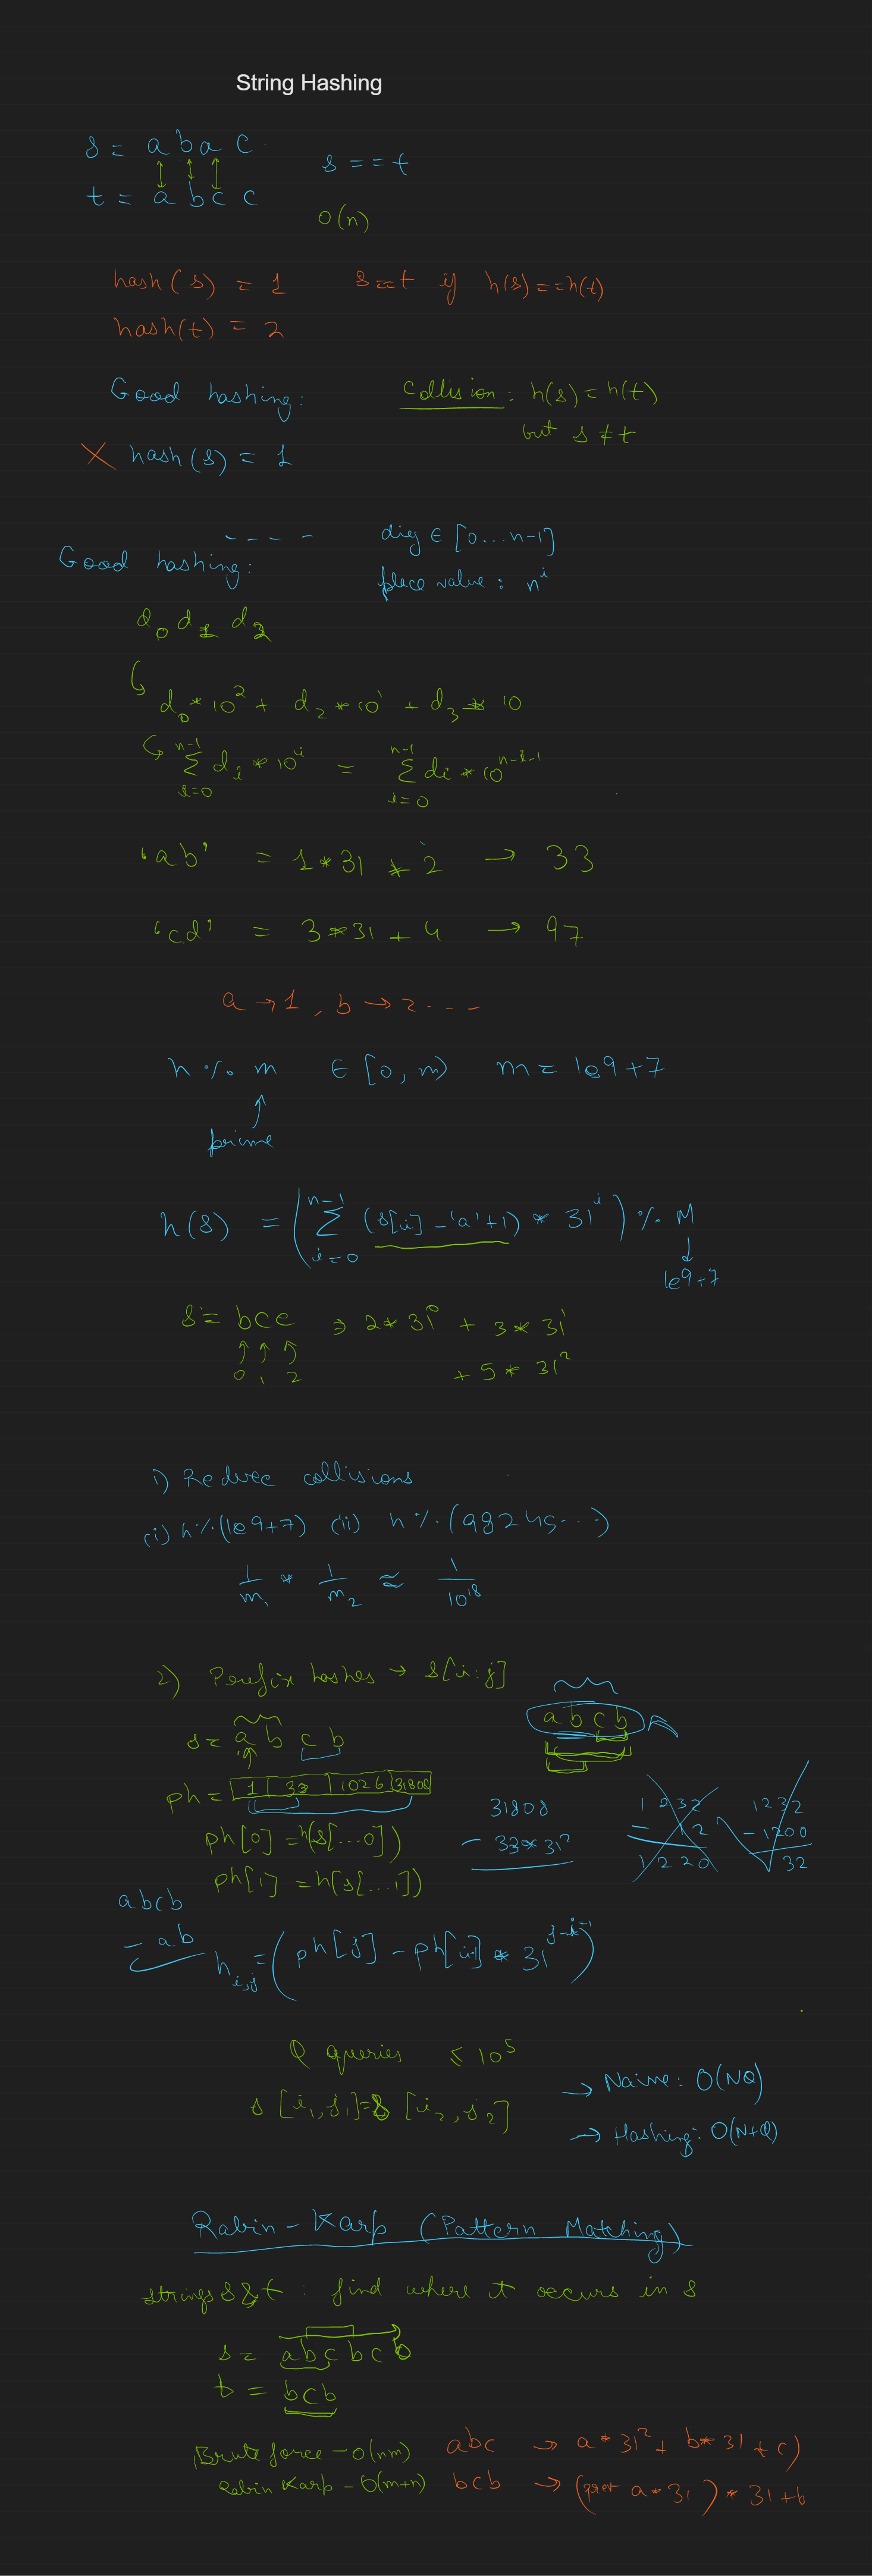 String Hashing
s = a b a c
s == t
t = a b c c
O(n)
hash(s) = 1 s=t if h(s)==h(t)
hash(t) = 2
Good hashing: Collision: h(s)=h(t)
but s ≠ t
X hash(s) = 1
---- dig ∈ [0...n-1]
Good hashing: place value: n^i
d_0 d_1 d_2
d_0 * 10^2 + d_2 * 10^1 + d_3 * 10
∑_{i=0}^{n-1} d_i * 10^i = ∑_{i=0}^{n-1} d_i * 10^{n-i-1}
'ab' = 1 * 31 + 2 → 33
'cd' = 3 * 31 + 4 → 97
a → 1, b → 2 ---
h % m ∈ [0, m) m = 1e9+7
prime
h(s) = (∑_{i=0}^{n-1} (s[i] - 'a' + 1) * 31^i) % M
1e9+7
s = bce ⇒ 2 * 31^0 + 3 * 31^1
0 1 2 + 5 * 31^2
1) Reduce collisions
(i) h % (1e9+7) (ii) h % (98245...)
1/m_1 * 1/m_2 ≈ 1/10^18
2) Prefix hashes → s[i:j]
a b c b
s = a b c b
ph = 1 33 1026 31808
31808 1232 1232
- 33*31^2 - 12 - 1200
1220 32
ph[0] = h(s[...0])
ph[1] = h(s[...1])
abcb
- ab
h_{i,j} = (ph[j] - ph[i-1] * 31^{j-i+1})
Q queries ≤ 10^5
s[i_1, j_1] = s[i_2, j_2]
→ Naive: O(NQ)
→ Hashing: O(N+Q)
Rabin-Karp (Pattern Matching)
strings s & t : find where t occurs in s
s = abcbcb
t = bcb
Brute force - O(nm) abc → a * 31^2 + b * 31 + c)
Rabin Karp - O(m+n) bcb → (prev - a * 31^2) * 31 + b